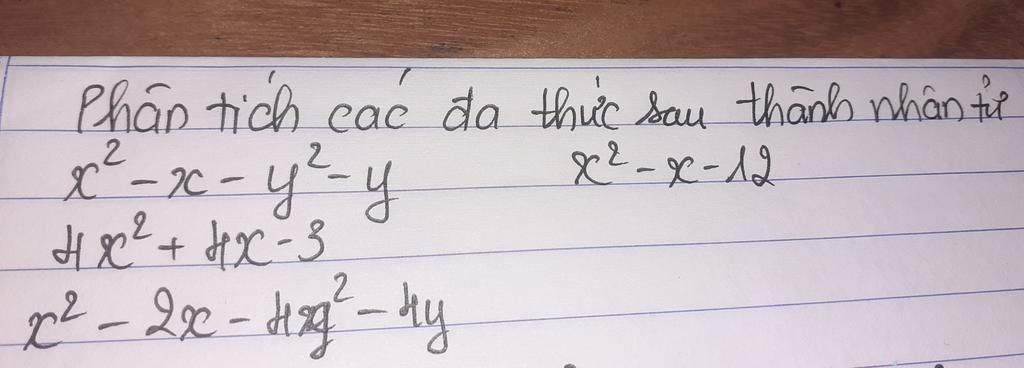 Phân tích các đa thức sau thành nhân tử
x² - x - y² - y x² - x - 12
4x² + 4x - 3
x² - 2x - 4xy² - 4y